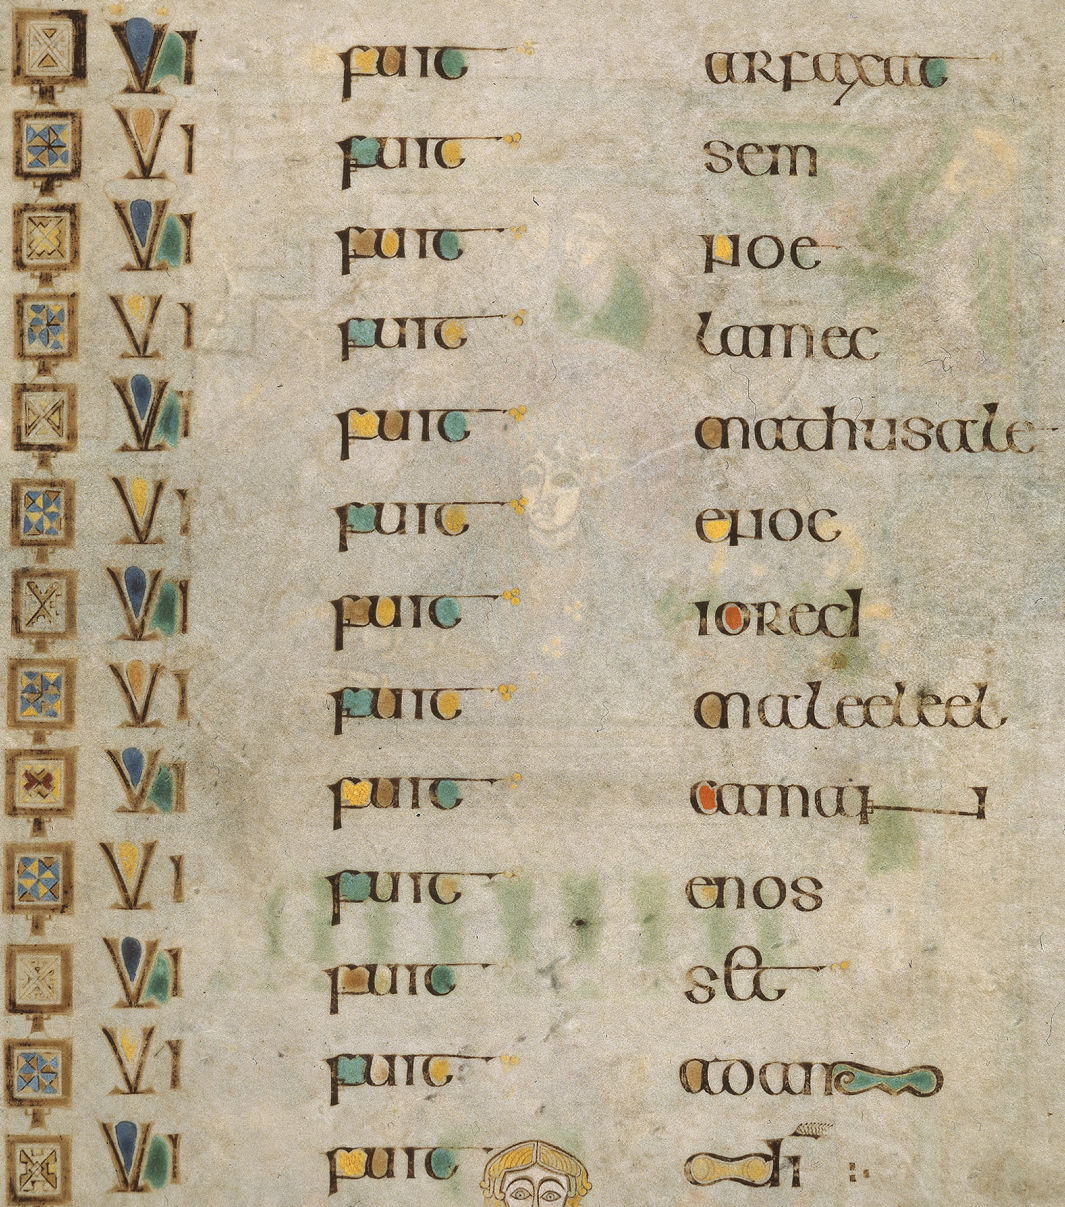 VI fuit arfaxat
VI fuit sem
VI fuit noe
VI fuit lamec
VI fuit mathusale
VI fuit enoc
VI fuit iored
VI fuit maleeleel
VI fuit caınan
VI fuit enos
VI fuit set
VI fuit adam
VI fuit di